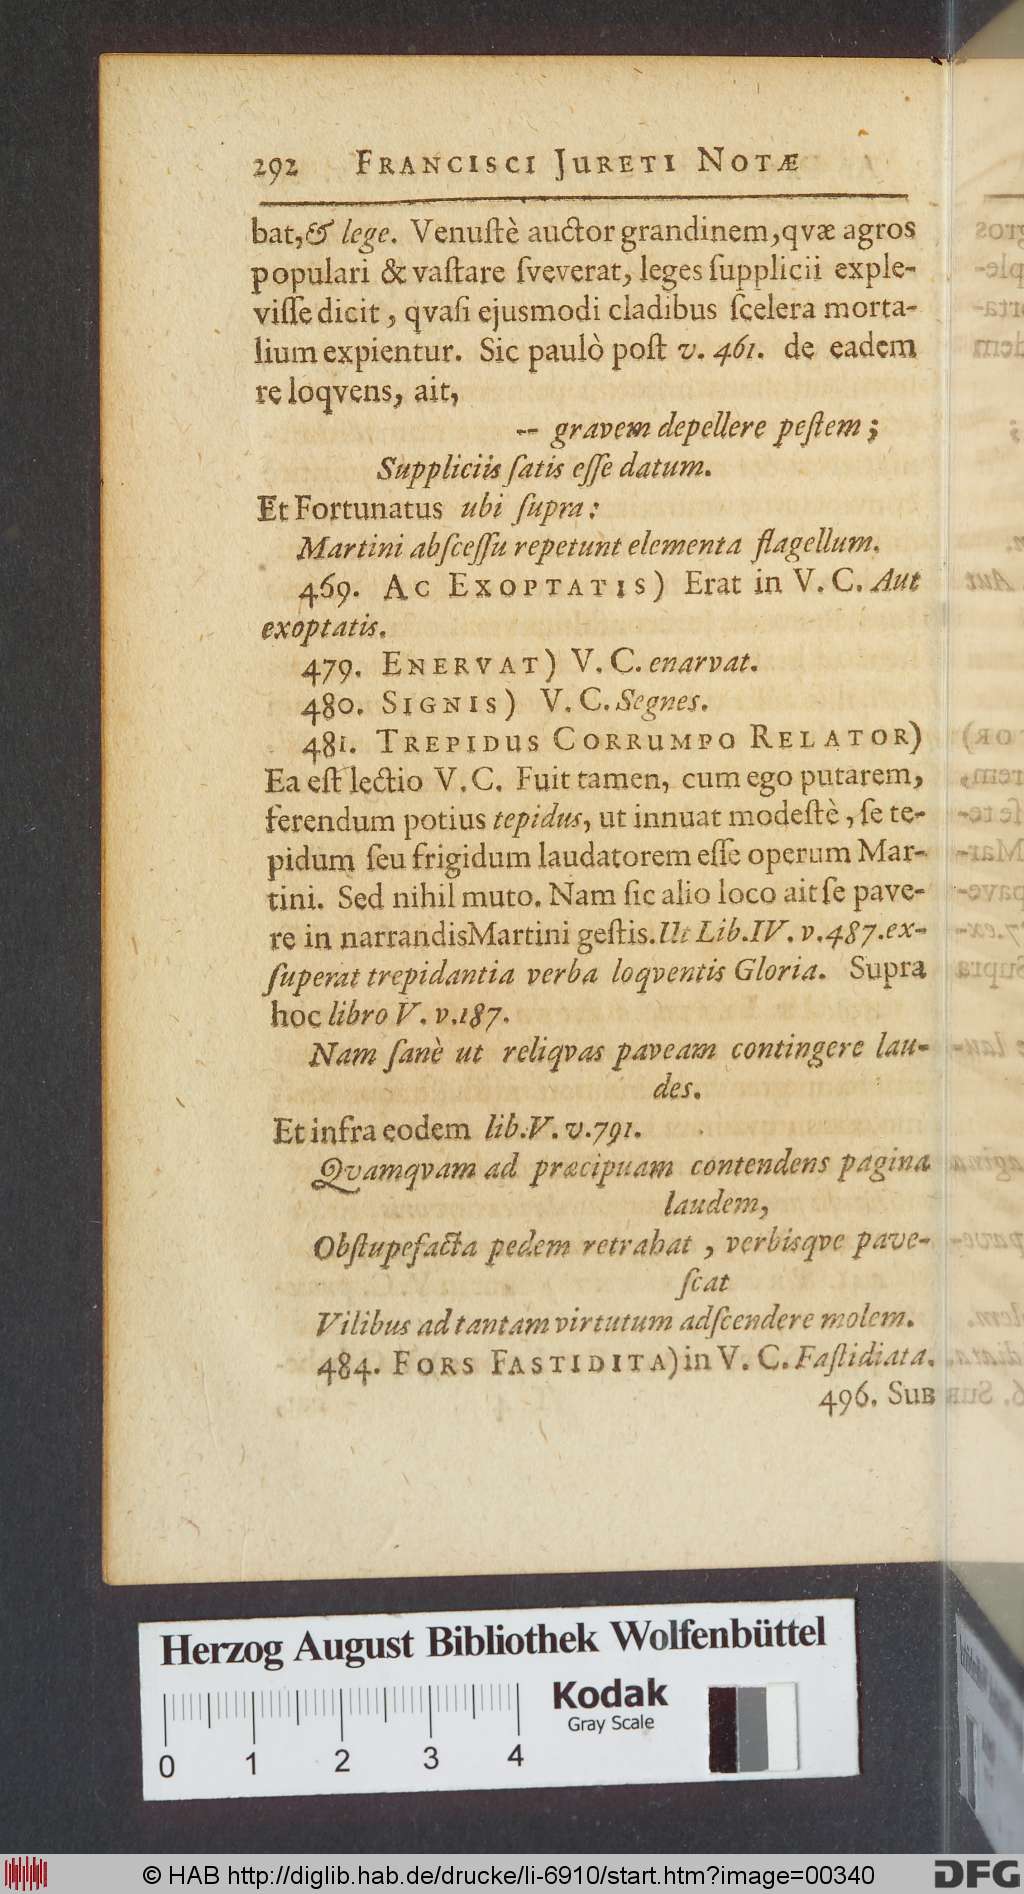 292 FRANCISCI JURETI NOTÆ
bat,& lege. Venuſtè auctor grandinem,qvæ agros
populari & vaſtare ſveverat, leges ſupplicii exple-
viſſe dicit, qvaſi ejusmodi cladibus ſcelera morta-
lium expientur. Sic paulò poſt v. 461. de eadem
re loqvens, ait,
-- gravem depellere peſtem;
Suppliciis ſatis eſſe datum.
Et Fortunatus ubi ſupra:
Martini abſceſſu repetunt elementa flagellum.
469. AC EXOPTATIS) Erat in V. C. Aut
exoptatis.
479. ENERVAT) V. C. enarvat.
480. SIGNIS) V. C. Segnes.
481. TREPIDUS CORRUMPO RELATOR)
Ea eſt lectio V. C. Fuit tamen, cum ego putarem,
ferendum potius tepidus, ut innuat modeſtè, ſe te-
pidum ſeu frigidum laudatorem eſſe operum Mar-
tini. Sed nihil muto. Nam ſic alio loco ait ſe pave-
re in narrandisMartini geſtis. Ut Lib. IV. v. 487. ex-
ſuperat trepidantia verba loqventis Gloria. Supra
hoc libro V. v.187.
Nam ſanè ut reliqvas paveam contingere lau-
des.
Et infra eodem lib. V. v.791.
Qvamqvam ad præcipuam contendens pagina
laudem,
Obſtupefacta pedem retrahat, verbisqve pave-
ſcat
Vilibus ad tantam virtutum adſcendere molem.
484. FORS FASTIDITA) in V. C. Faſtidiata.
496. SUB
Herzog August Bibliothek Wolfenbüttel
Kodak
Gray Scale
0 1 2 3 4
© HAB http://diglib.hab.de/drucke/li-6910/start.htm?image=00340
DFG